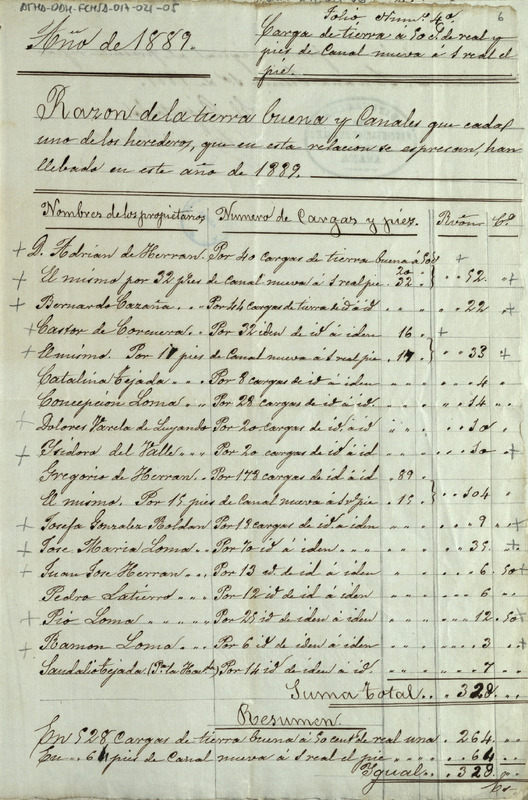 ATHA-DDH-FCHSA-017-021-05
Folio Num.º 4º. 6
Año de 1889.
Carga de tierra á 50 Cs de real y
pies de Canal nueva á 1 real el
pié.
Razon de la tierra buena y Canales que cada
uno de los herederos, que en esta relacion se espresan, han
llebado en este año de 1889.
Nombres de los propietarios Numero de Cargas y piez. Rvón Cs
D. Adrian de Herran. Por 40 cargas de tierra buena á 50 Cs 20
El mismo por 32 pies de Canal nueva á 1 real pie 32 52
Bernardo Cazaña Por 44 cargas de tierra id á id 22
Castor de Corcuera Por 32 iden de id á iden 16
El mismo. Por 17 pies de Canal nueva á 1 real pie 17 33
Catalina Tejada Por 8 cargas de id á iden 4
Concepcion Loma Por 28 cargas de id á id 14
Dolores Varela de Luyando Por 20 cargas de id á id 10
Ysidora del Valle Por 20 cargas de id á id 10
Gregorio de Herran Por 178 cargas de id á id 89
El mismo. Por 15 pies de Canal nueva á 1 rl pie 15 104
Josefa Gonzalez Roldan Por 18 cargas de id á iden 9
Jose Maria Loma Por 70 id á iden 35
Juan Jose Herran Por 13 id de id á iden 6 50
Pedro Latierro Por 12 id de id á iden 6
Pió Loma Por 25 id de iden á iden 12 50
Ramon Loma Por 6 id de iden á iden 3
Saudalio Tejada Por 14 id de iden á id. 7
Suma total 328
Resumen
En 528 Cargas de tierra buena á 50 cent de real una 264
En 64 pies de Canal nueva á 1 real el pie 64
Ygual 328